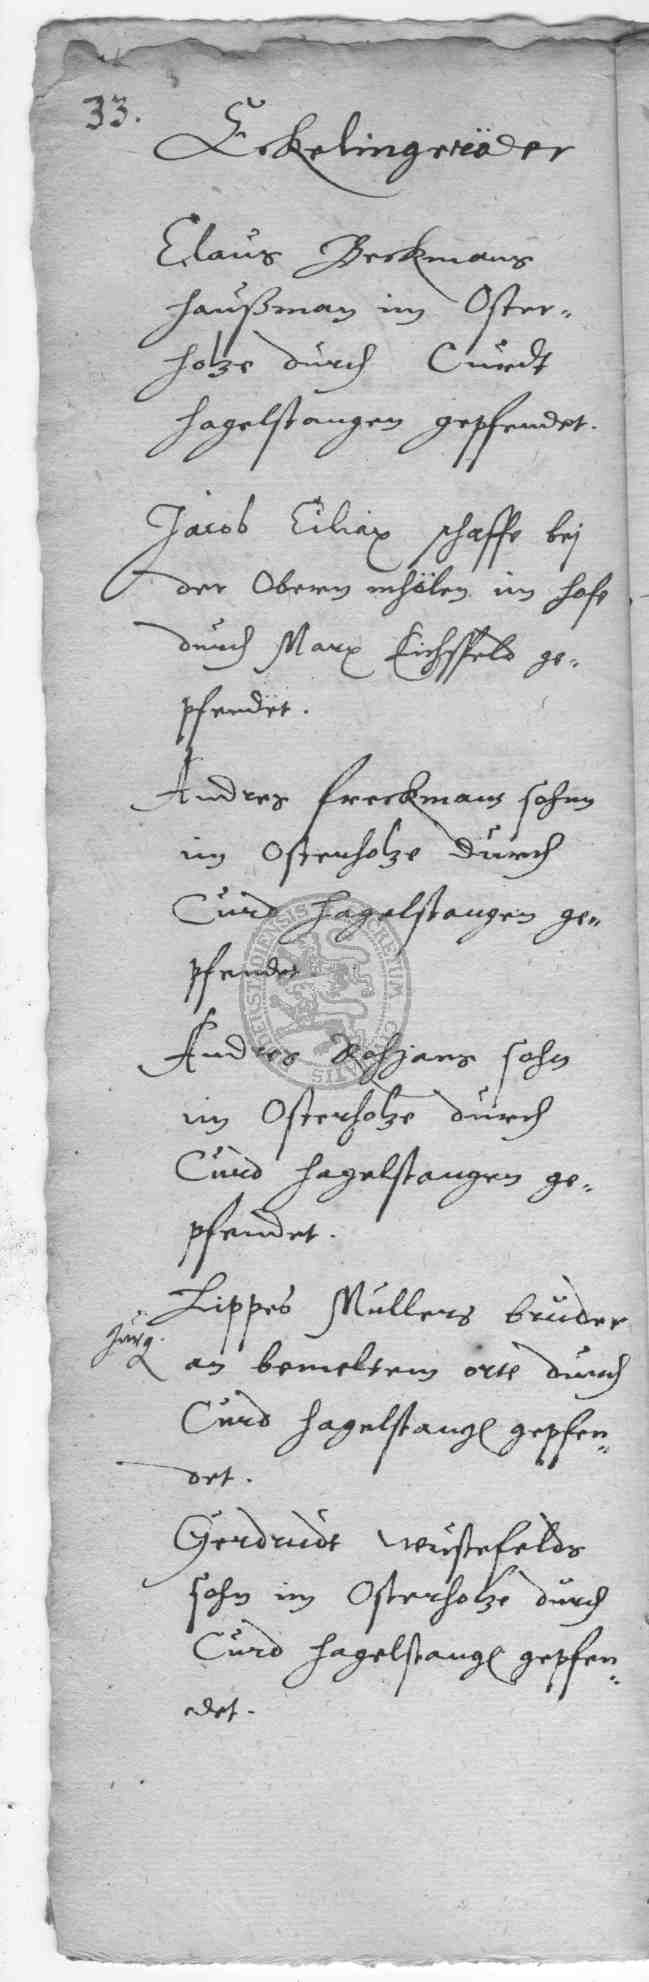 33.
Eckelingeröder
Claus Beckmans
haußman im Oster-
holze durch Curdt
hagelstangen gepfendet.
Jacob Ciliax schaffe bej
der Obern mhölen im hofe
durch Marx Eichsfeld ge-
pfendet.
Andres freckmans sohnn
im Osterholze durch
Curd hagelstangen ge-
pfendet
Andres sohn
im Osterholze durch
Curd hagelstangen ge-
pfendet.
Lippes Mullers bruder
Jurg.
an bemeltem orte durch
Curd hagelstangen gepfen-
det.
Gerdrudt wustefelds
sohn im Osterholze durch
Curd hagelstangen gepfen-
det.